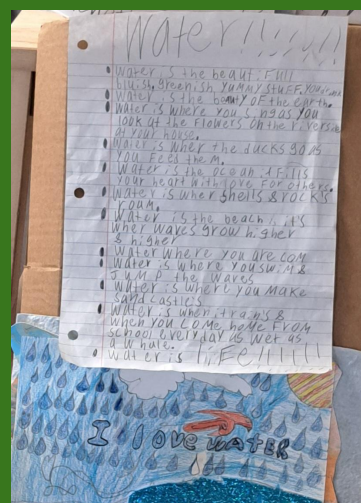 Water!!!!!!!
Water is the beautifull
bluish, greenish yummy stuff. you
Water is the beauty of the earth.
Water is where you sing as you
look at the flowers on the riverside
at your house.
Water is wher the ducks go as
you feed them.
Water is the ocean it fills
your heart with love for others.
Water is wher shells & rocks
roam.
Water is the beach it's
wher waves grow higher
& higher
Water where you are calm
Water is where you swim &
JUMP the waves
Water is where you make
sand castles
Water is when it rains &
when you come home from
school everyday as wet as
a whale.
Water is life!!!!!!
I love WATER